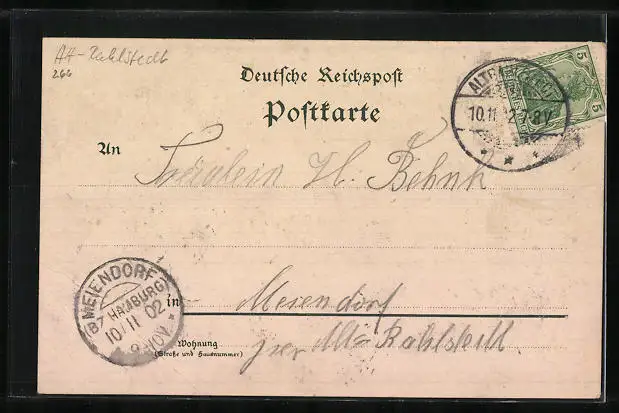 Alt-Rahlstedt
266
Deutsche Reichspost
Postkarte
An
Fräulein H. Behnk
5
5
10.11
8V
MEIENDORF
(BZ HAMBURG)
10/11 02
8-10V.
in
Meiendorf
Wohnung
(Straße und Hausnummer)
per Alt-Rahlstedt